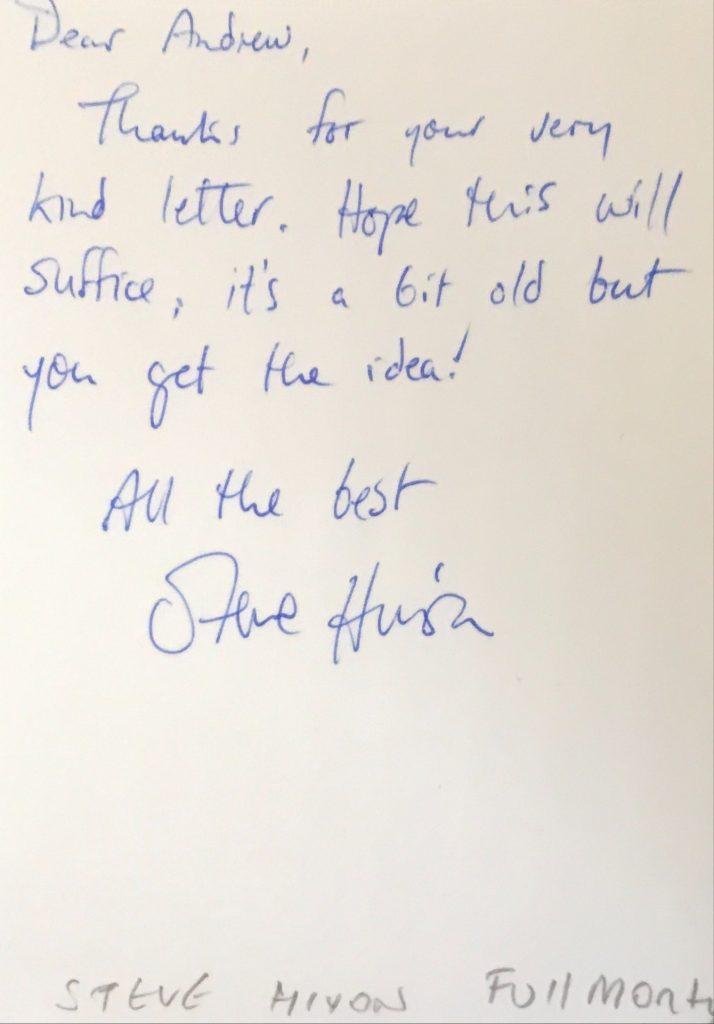 Dear Andrew,
Thanks for your very
kind letter. Hope this will
suffice, it's a bit old but
you get the idea!
All the best
Steve Huison
STEVE HIVON Full Monty